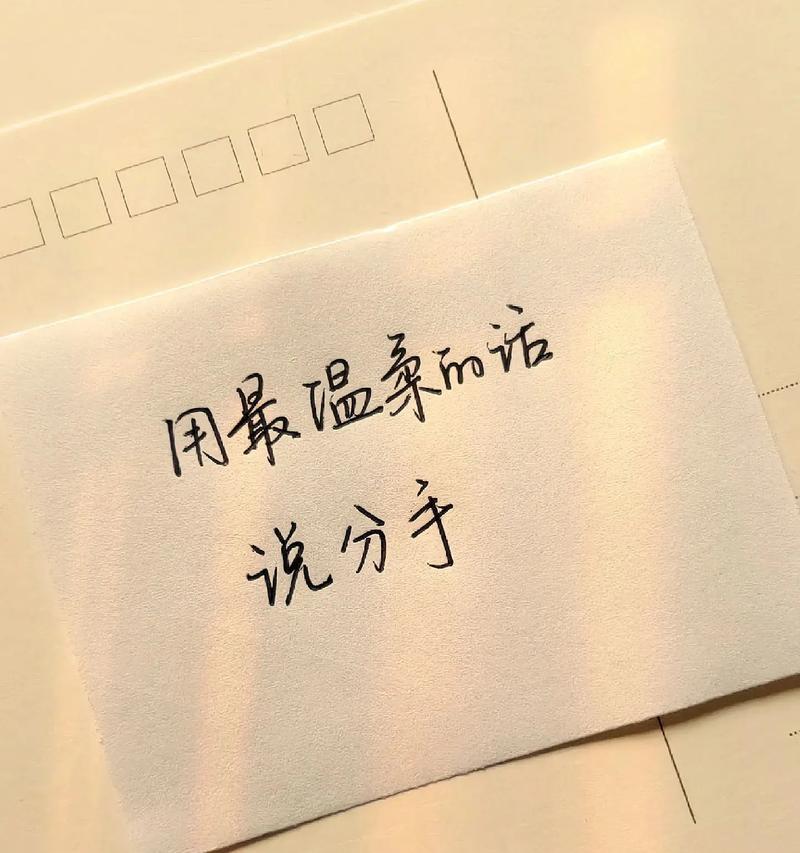 用最温柔的话
说分手